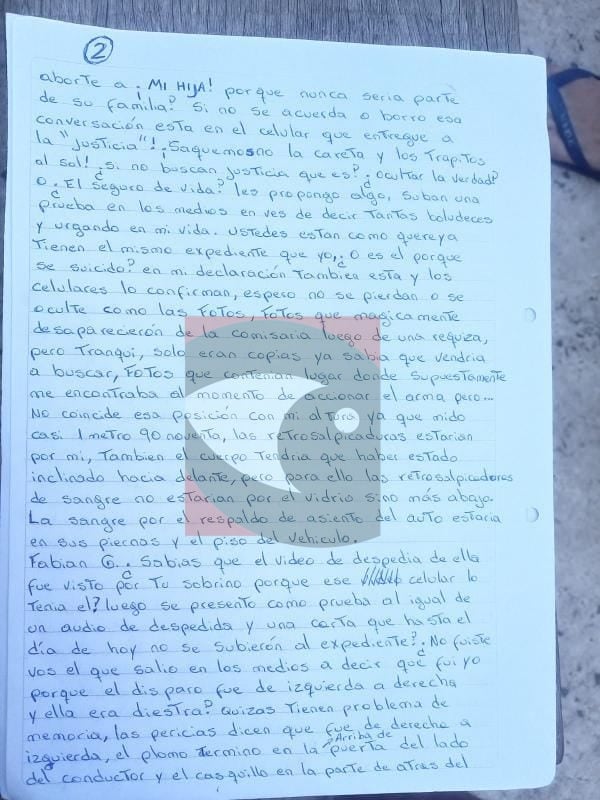 2
aborte a ¡MI HIJA! porque nunca seria parte
de su familia? Si no se acuerda o borro esa
conversación esta en el celular que entregue a
la "justicia"! ¡Saquemosno la careta y los Trapitos
al sol! ¿Si no buscan justicia que es? ¿ocultar la verdad?
O ¿El seguro de vida? les propongo algo, suban una
prueba en los medios en ves de decir Tantas boludeces
y urgando en mi vida. ustedes estan como quereya
Tienen el mismo expediente que yo, ¿O es el porque
se suicido? en mi declaración Tambien esta y los
celulares lo confirman, espero no se pierdan o se
oculte como las FOTOS, FOTOS que magicamente
desaparecierón de la comisaria luego de una requiza,
pero Tranqui, solo eran copias ya sabia que vendria
a buscar, FOTOS que contenian lugar donde supuestamente
me encontraba al momento de accionar el arma pero...
No coincide esa posición con mi altura ya que mido
casi 1 metro 90 noventa, las retrosalpicaduras estarian
por mi, Tambien el cuerpo Tendria que haber estado
inclinado hacia delante, pero para ello las retrosalpicadores
de sangre no estarian por el vidrio sino más abajo.
La sangre por el respaldo de asiento del auto estaria
en sus piernas y el piso del vehiculo.
Fabian G. ¿Sabias que el video de despedia de ella
fue visto por Tu sobrino porque ese celular lo
Tenia el? luego se presento como prueba al igual de
un audio de despedida y una carta que hasta el
día de hoy no se subierón al expediente? ¿No fuiste
vos el que salio en los medios a decir que fui yo
porque el disparo fue de izquierda a derecha
y ella era diestra? Quizas Tienen problema de
memoria, las pericias dicen que fue de derecha a
izquierda, el plomo Termino en la Arriba de puerta del lado
del conductor y el casquillo en la parte de atres del